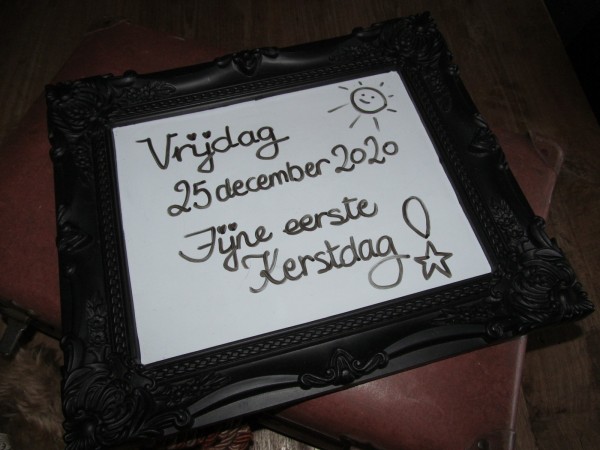 Vrijdag
25 december 2020
Fijne eerste
Kerstdag!